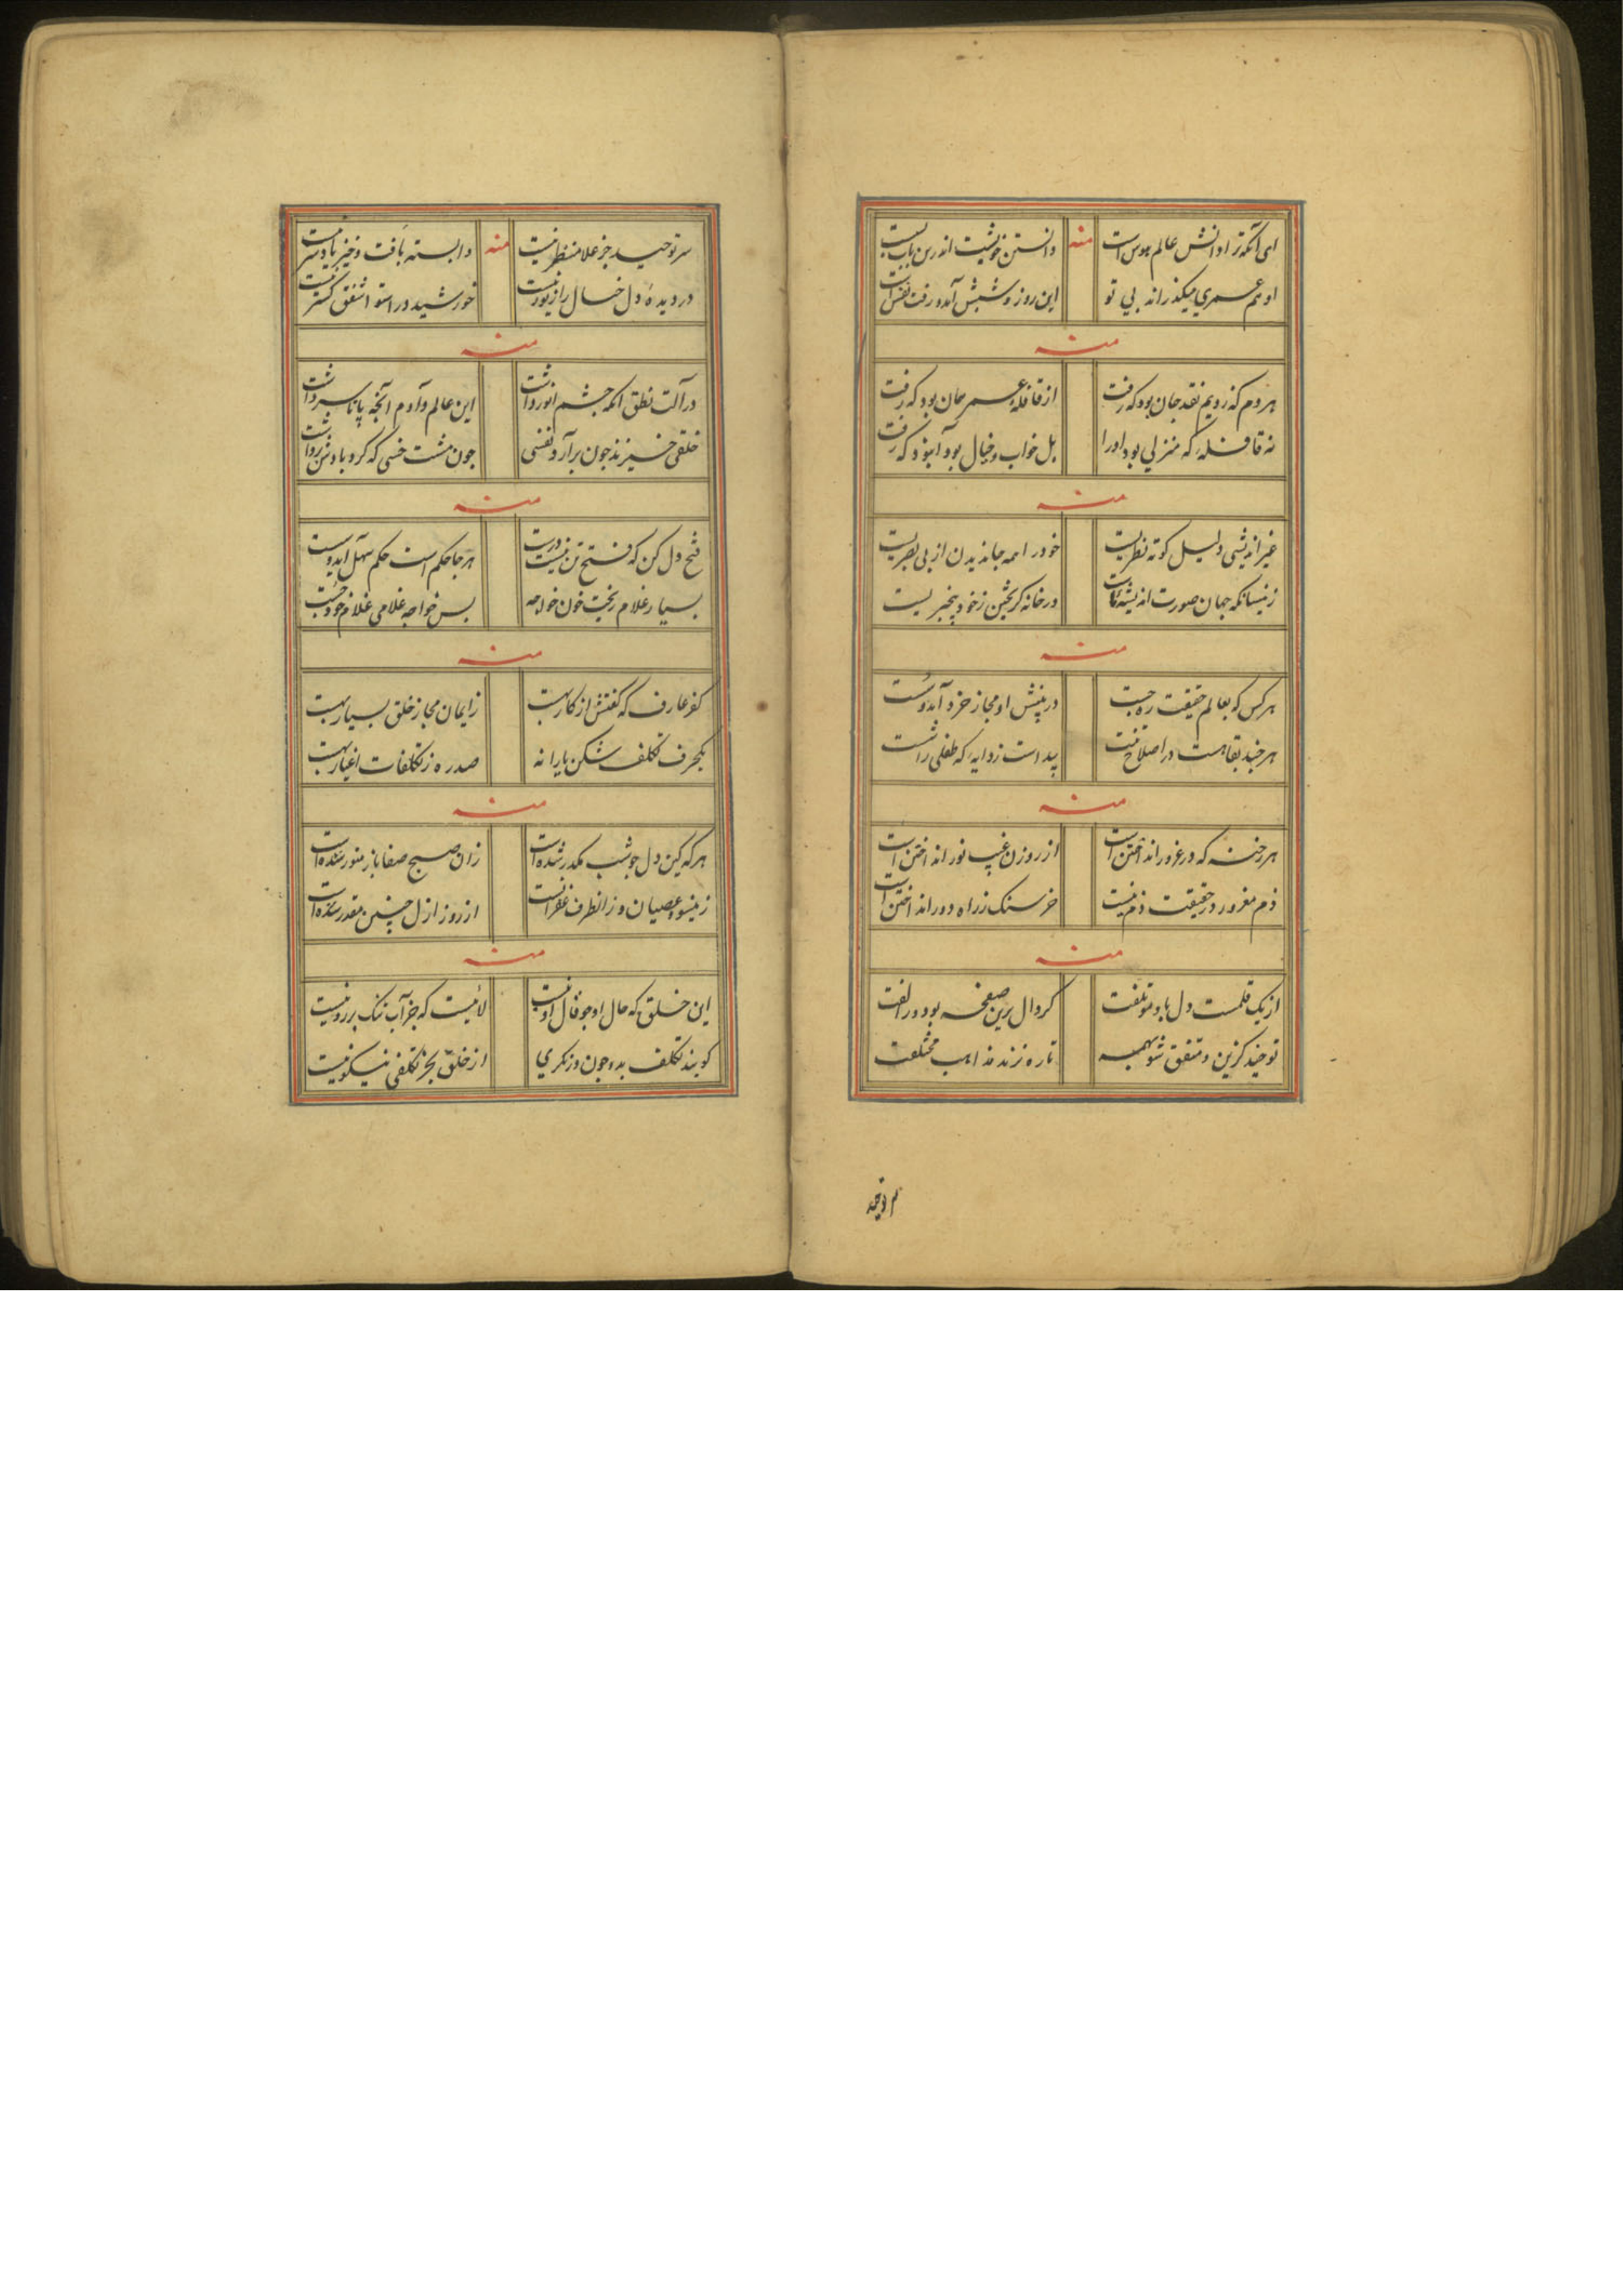 ای آنکه ترا دانش عالم هوس است منه دانستن خویشت اندرین باب بس است
او هم عمری میگذراند بی تو این روز و شبش آمد و رفت نفس است
منه
هر دم که زدیم نقد جان بود که رفت از قافلهٔ عمر همان بود که رفت
نه قافله که منزلی بود او را بل خواب و خیال بود آنبود که رفت
منه
غیر اندیشی دلیل کوته نظریست خود را همه جا ندیدن از بی بصریست
زینسانکه جهان صورت اندیشه تست در خانه گریختن ز خود بیخبریست
منه
هر کس کو بعالم حقیقت ره جست در بینش او مجاز خرد آید و سست
هر چند بقا هست در اصلاح پیداست ز دایه که طفلی را شست
منه
هر رخنه که در غرور انداختن است از روزن غیب نور انداختن است
ذم مغرور در حقیقت ذم نیست خرسنک ز راه دور انداختن است
منه
از یک قلمست دل باو مؤتلفت کر دال برین صفحه بود ور الفت
توحید گزین و متفق شو بهمه تا ره نزند مذاهب مختلفت
سر توحید
سر توحید جز علا منظر نیست منه وابسته بافت و خیز یا و سر نیست
در دیدهٔ دل خسال را زیور نیست خورشید در استوا شفق گستر نیست
منه
در آلت نطق انکه چشم انور داشت این عالم و آدم آنچه پا تا سر داشت
خلقی خیزند چون برآرد نفسی چون مشت خسی که گرد بادش برداشت
منه
فتح دل کن که فتح تن نیست درست هر جا حکم است حکم سهل آید و سست
بسیار غلام ریخت خون خواجه بس خواجه غلامی غلام خود جست
منه
کفر عارف که گفتنش از کار بهست ز ایمان مجاز خلق بسیار بهست
یکحرف تکلف شکن یارانه صد ره ز تکلفات اغیار بهست
منه
هر که کین دل چو شب مکدر شده است زان صبح صفا باز منور شده است
زینسو عصیان و زانطرف غفرانست از روز ازل چنین مقدر شده است
منه
این خلق که حال او جو قال او نیست لائیست که جز آب تنک بر رو نیست
گویند تکلف بد و چون در نگری از خلق بجز تکلفی نیکو نیست